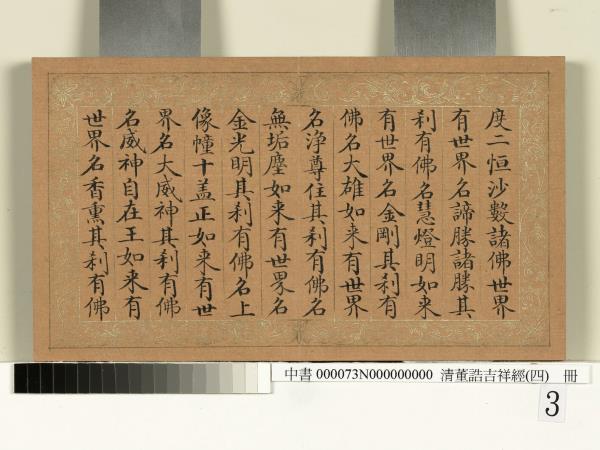 度二恒沙數諸佛世界
有世界名諦勝諸勝其
刹有佛名慧燈明如来
有世界名金剛其刹有
佛名大雄如来有世界
名浄尊住其刹有佛名
無垢塵如来有世界名
金光明其刹有佛名上
像幢十盖正如来有世
界名大威神其刹有佛
名威神自在王如来有
世界名香熏其刹有佛
中書 000073N000000000 清董誥吉祥經(四) 冊
3